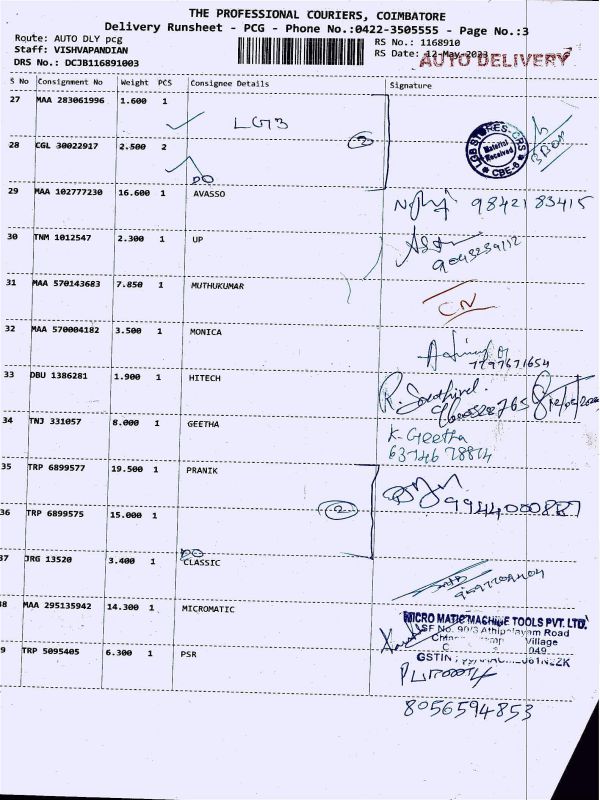 THE PROFESSIONAL COURIERS, COIMBATORE
Delivery Runsheet - PCG - Phone No.:0422-3505555 - Page No.:3
Route: AUTO DLY pcg
Staff: VISHVAPANDIAN
DRS No.: DCJB116891003
RS No.: 1168910
RS Date: 12-May-2023
AUTO DELIVERY
S No Consignment No Weight PCS Consignee Details Signature
27 MAA 283061996 1.600 1 LGB
28 CGL 30022917 2.500 2 DO
LGB STORES-CRS
Material Received
CBE-6
29 MAA 102777230 16.600 1 AVASSO 9842183415
30 TNM 1012547 2.300 1 UP
31 MAA 570143683 7.850 1 MUTHUKUMAR CN
32 MAA 570004182 3.500 1 MONICA
33 DBU 1386281 1.900 1 HITECH
34 TNJ 331057 8.000 1 GEETHA K. Geetha
35 TRP 6899577 19.500 1 PRANIK
36 TRP 6899575 15.000 1 2
DO
37 JRG 13520 3.400 1 CLASSIC
38 MAA 295135942 14.300 1 MICROMATIC
MICRO MATIC MACHINE TOOLS PVT. LTD.
SF No. 90/3 Athipalayam Road
Village
049
GSTIN
39 TRP 5095405 6.300 1 PSR
8056594853